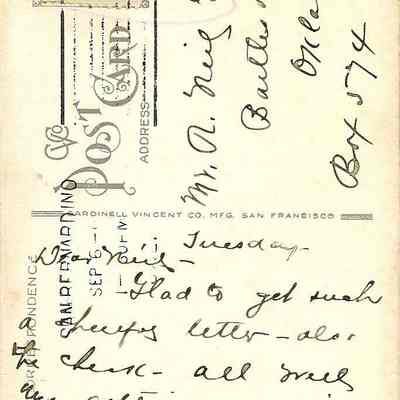 POST CARD
ADDRESS
Mr. R. Neil
Bartles
Okla
Box 574
CARDINELL VINCENT CO. MFG. SAN FRANCISCO
SAN BERNARDINO
SEP 6
PM
CORRESPONDENCE
Tuesday
Dear Neil -
Glad to get such
letter - also
check - all well